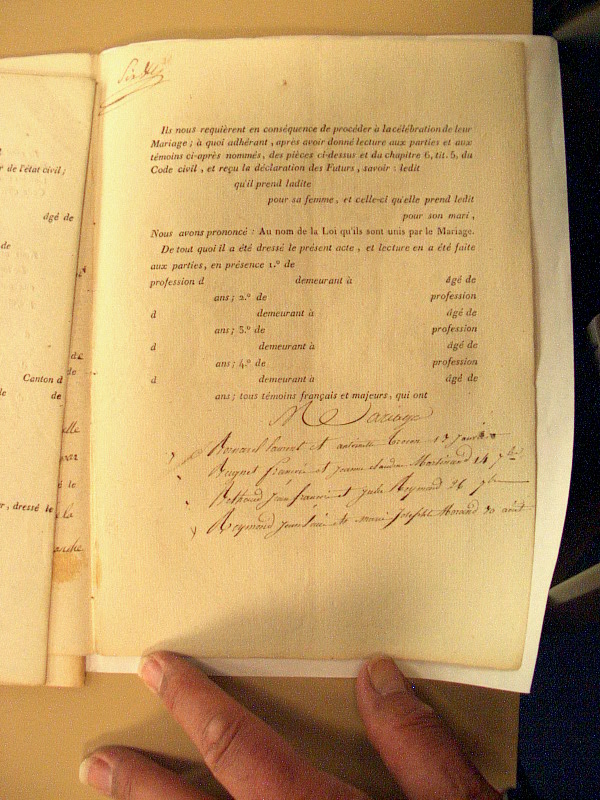 Ils nous requièrent en conséquence de procéder à la célébration de leur
Mariage; à quoi adhérant, après avoir donné lecture aux parties et aux
témoins ci-après nommés, des pièces ci-dessus et du chapitre 6, tit. 5, du
Code civil, et reçu la déclaration des Futurs, savoir: ledit
qu'il prend ladite
pour sa femme, et celle-ci qu'elle prend ledit
pour son mari,
Nous avons prononcé: Au nom de la Loi qu'ils sont unis par le Mariage.
De tout quoi il a été dressé le présent acte, et lecture en a été faite
aux parties, en présence 1.º de
profession d demeurant à âgé de
ans; 2.º de profession
d demeurant à âgé de
ans; 3.º de profession
d demeurant à âgé de
ans; 4.º de profession
d demeurant à âgé de
ans; tous témoins français et majeurs, qui ont
Mariage
laurent et antoinette 15
françois et jeanne claudine 14 7bre
jean françois et julie Reymond 26 7bre
Reymond et marie josephte Morand 30 août
r de l'état civil;
âgé de
de
de
Canton d
de de
elle
par
é le
r, dressé le
la